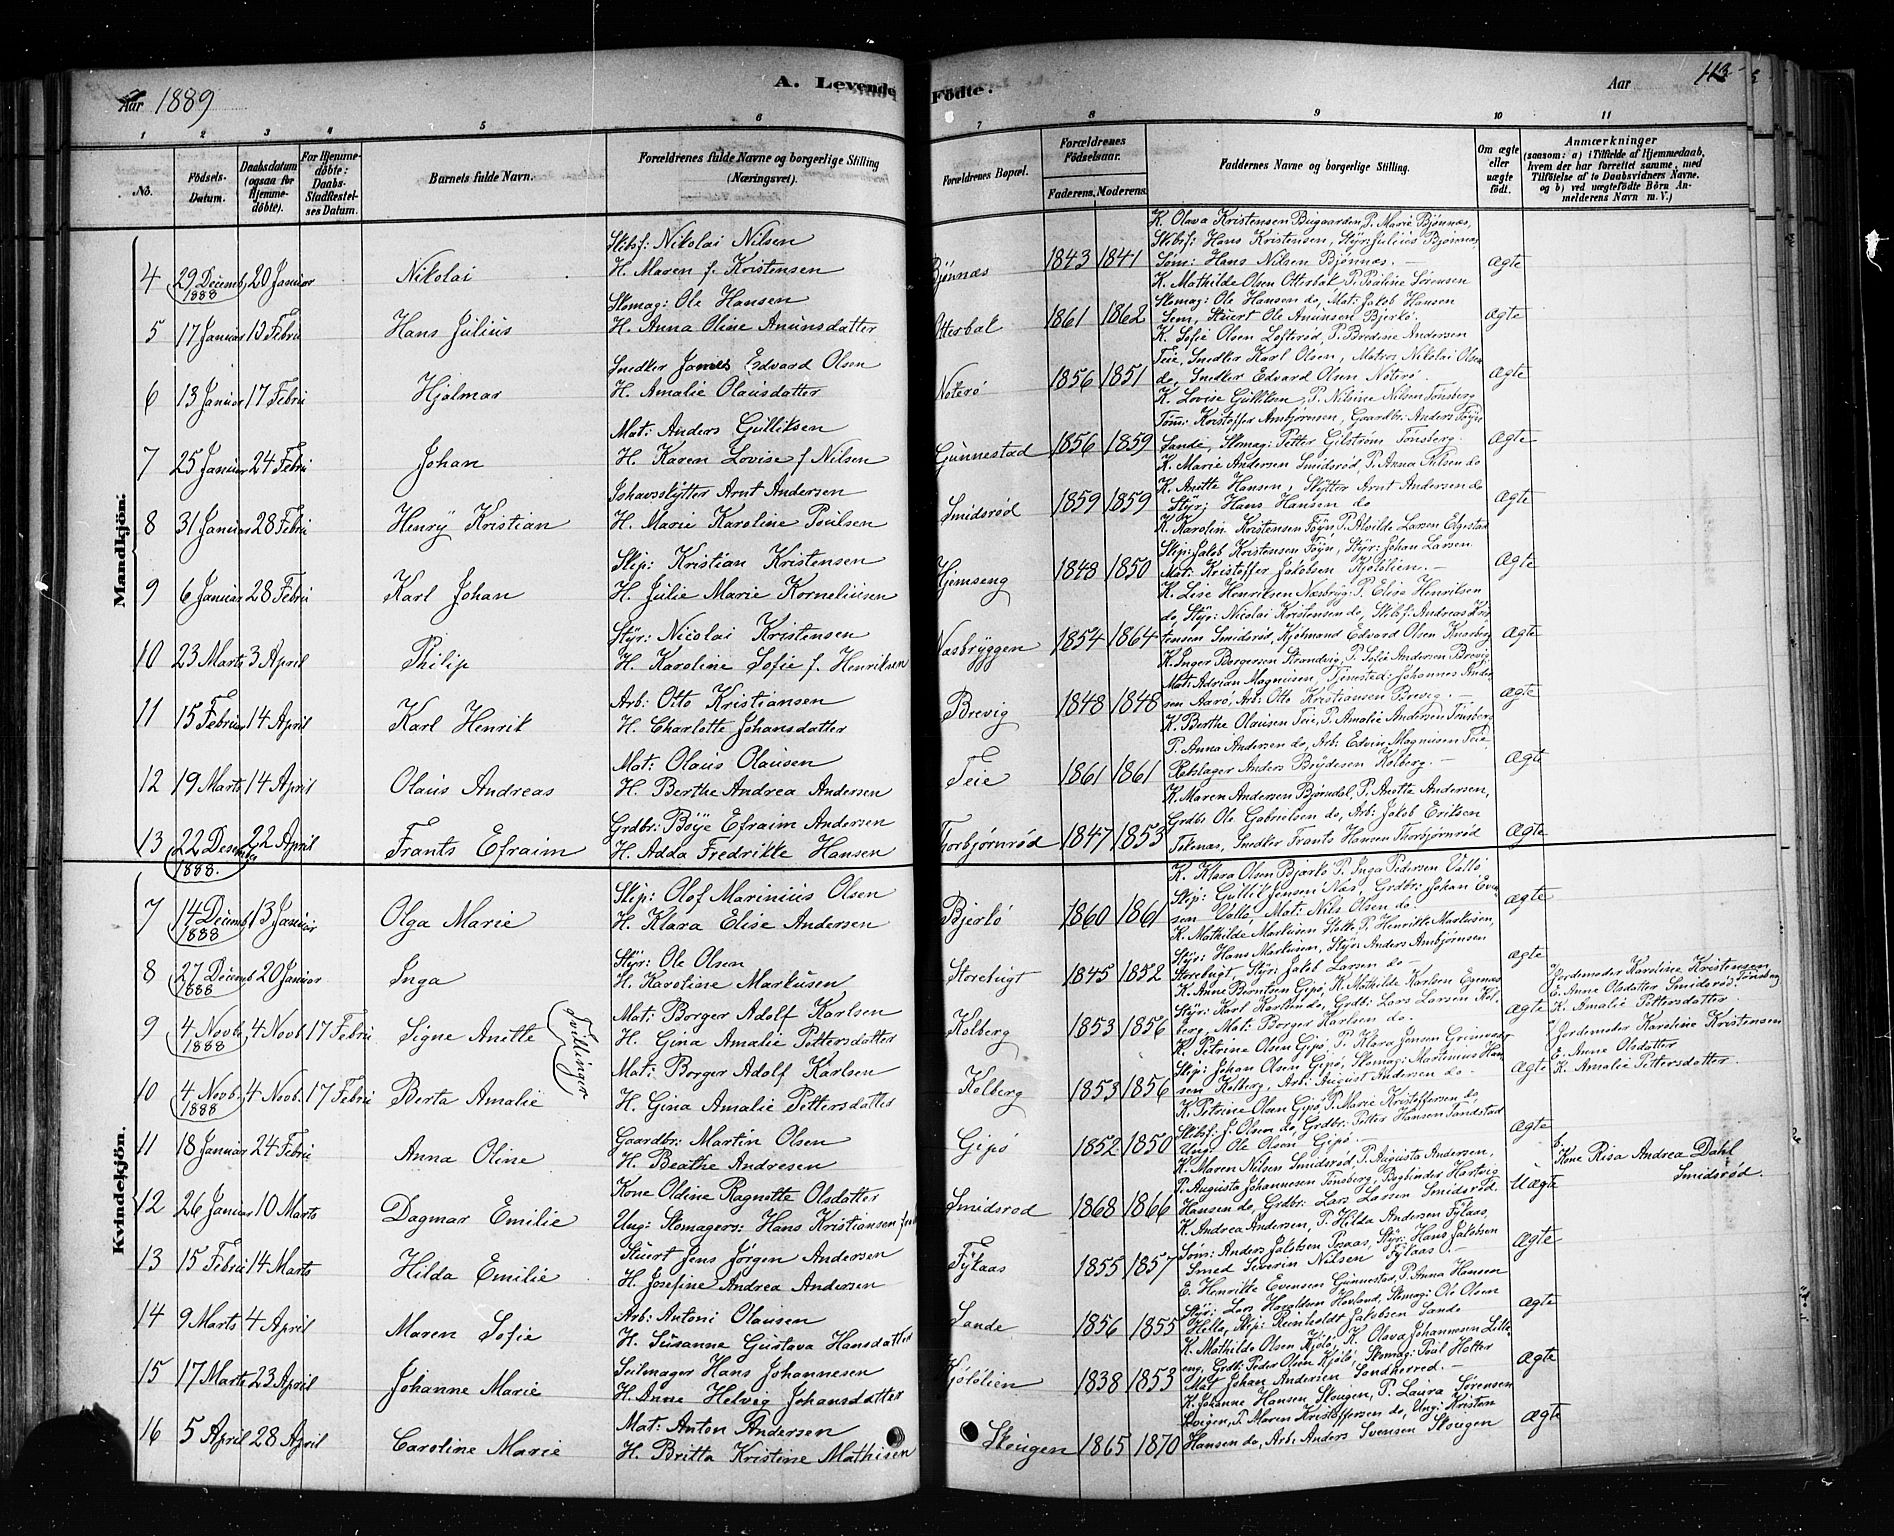 Aar 1889
A. Levende Fødte.
Aar
113
1 2 3 4 5 6 7 8 9 10 11
No.
Fødsels-Datum.
Daabsdatum (ogsaa for Hjemmedøbte).
For Hjemmedøbte: Daabs-Stadfæstelses Datum.
Barnets fulde Navn.
Forældrenes fulde Navne og borgerlige Stilling (Næringsvei).
Forældrenes Bopæl.
Forældrenes Fødselsaar.
Faderens. Moderens.
Faddernes Navne og borgerlige Stilling.
Om ægte eller uægte født.
Anmærkninger (saasom: a) i Tilfælde af Hjemmedaab, hvem der har forrettet samme, med Tilføielse af to Daabsvidners Navne. og b) ved uægtefødte Börn Anmelderens Navn m. V.)
Mandkjön:
4 29 Decemb. 1888 20 Januar Nikolai
Skibsf: Nikolai Nilsen
H. Maren f. Kristensen
Bjønnæs 1843 1841
K. Olava Kristensen Bugaarden, P. Marie Bjønnæs,
Skibsf: Hans Kristensen, Styr: Julius Bjønnæs
Søm: Hans Nilsen Bjønnæs. —
ægte
5 17 Januar 13 Febru Hans Julius
Skomag: Ole Hansen
H. Anna Oline Amunsdatter
Otterbæk 1861 1862
K. Mathilde Olsen Otterbæk P. Pauline Sørensen
Skomag: Ole Hansen do, Mat: Jakob Hansen
Sem, Stuert Ole Amunsen Bjerkø.
ægte
6 13 Januar 17 Febru Hjalmar
Snedker James Edvard Olsen
H. Amalie Olausdatter
Nøterø 1856 1851
K. Sofie Olsen Lofterød, P. Bredine Andersen
Teie, Snedker Karl Olsen, Matros Nikolai Olsen
do, Snedker Edvard Olsen Nøterø.
ægte
7 25 Januar 24 Febru Johan
Mat: Anders Gulliksen
H. Karen Lovise f. Nilsen
Gunnestad 1856 1859
K. Lovise Gulliksen, P. Nilsine Nilsen Tønsberg
Tøm: Kristoffer Ambjørnsen, Gaardbr: Anders Føyn
Sande, Skomag: Petter Gilstrøm Tønsberg.
ægte
8 31 Januar 28 Febru Henry Kristian
Ishavsskytter Arnt Andersen
H. Marie Karoline Poulsen
Smidsrød 1859 1859
K. Marie Andersen Smidsrød, P. Anna Nilsen do
K. Anette Hansen, Skytter Arnt Andersen do
Styr; Hans Hansen do
ægte
9 6 Januar 28 Febru Karl Johan
Skip: Kristian Kristensen
H. Julie Marie Korneliusen
Hjemseng 1848 1850
K. Karolin Kristensen Føyn, P. Alvilde Larsen Elgestad
Skip: Jakob Kristensen Føyn, Styr: Johan Larsen
Mat: Kristoffer Jakobsen Kjøløien. —
ægte
10 23 Marts 3 April Philip
Styr: Nicolai Kristensen
H. Karoline Sofie f. Henriksen
Næsbryggen 1854 1864
K. Lise Henriksen Næsbryg: P. Elise Henriksen
do, Styr: Nicolai Kristensen do, Skibsf: Andreas Kris
tensen Smidsrød, Kjøbmand Edvard Olsen Knarberg
ægte
11 15 Febru 14 April Karl Henrik
Arb: Otto Kristiansen
H. Charlotte Johansdatter
Brevig 1848 1848
K. Inger Borgersen Strandvig, P. Sofie Andersen Brevig
Mat: Adrian Magnusen, Tjenested: Johannes Ander
sen Aarø, Arb: Otto Kristiansen Brevig. —
ægte
12 19 Marts 14 April Olaus Andreas
Mat: Olaus Olausen
H. Berthe Andrea Andersen
Teie 1861 1861
K. Berthe Olausen Teie, P. Amalie Andersen Tønsberg
P. Anna Andersen do, Arb: Edvin Magnusen Teie
Rebslager Anders Bøydesen Kolberg. —
ægte
13 22 Desember 1888. 22 April Frants Efraim
Grdbr: Bøye Efraim Andersen
H. Adda Fredrikke Hansen
Torbjørnrød 1847 1853
K. Maren Andersen Bjørndal, P. Anette Andersen,
Grdb: Ole Gabrielsen do, Arb: Jakob Eriksen
Tekenæs, Snedker Frants Hansen Thorbjørnrød
ægte
Kvindekjön.
7 14 Decemb 1888 13 Januar Olga Marie
Skip: Olof Marinius Olsen
H. Klara Elise Andersen
Bjerkø 1860 1861
K. Klara Olsen Bjerkø P. Inga Pedersen Vallø
Skip: Gullik Jensen Næs, Grdbr: Johan Even
sen Vallø, Mat: Nils Olsen do.
ægte
8 27 Decemb 1888 20 Januar Inga
Styr: Ole Olsen
H. Karoline Markusen
Storehugt 1845 1852
K. Mathilde Markusen Holte, P. Henrikke Markusen,
Styr: Hans Markusen, Styr: Anders Ambjørnsen
Storehugt, Styr: Jakob Larsen do —
ægte
9 4 Novb. 1888 4 Novb. 17 Febru Signe Anette
Tvillinger
Mat: Borger Adolf Karlsen
H. Gina Amalie Pettersdatter
Kolberg 1853 1856
K. Anne Berntsen Gipø, K. Mathilde Karlsen Egenes
Styr: Karl Karlsen do, Grdb: Lars Larsen Kol
berg, Mat: Borger Karlsen do.
ægte
a, Jordemoder Karoline Kristensen Tønsberg
E. Anne Olsdatter Smidsrød
K. Amalie Pettersdatter
10 4 Novb. 1888 4 Novb. 17 Febru Berta Amalie
Mat: Borger Adolf Karlsen
H. Gina Amalie Pettersdatter
Kolberg 1853 1856
K. Petrine Olsen Gipø, P. Klara Jensen Grimestad
Skip: Johan Olsen Gipø, Skomag: Martinius Han
sen Kolberg, Arb: August Andersen do —
ægte
a, Jordemoder Karoline Kristensen
E. Anne Olsdatter
K. Amalie Pettersdatter
11 18 Januar 24 Febru Anna Oline
Gaardbr: Martin Olsen
H. Beathe Andresen
Gipø 1852 1850
K. Petrine Olsen Gipø, P. Marie Kristoffersen do,
Skibsf: J. Olsen do, Grdbr: Petter Hansen Sandstad
Ung: Ole Olsen Gipø. —
ægte
12 26 Januar 10 Marts Dagmar Emilie
Kone Oldine Ragnette Olsdatter
Ung: Skomagers: Hans Kristiansen
Smidsrød 1868 1866
K. Maren Nilsen Smidsrød, P. Augusta Andersen,
P. Augusta Johannesen Tønsberg, Bogbinder Hartvig
Hansen do, Grdbr: Lars Larsen Smidsrød.
Uægte
b. Kone Risa Andrea Dahl
Smidsrød.
13 15 Febru 14 Marts Hilda Emilie
Stuert Jens Jørgen Andersen
H. Josefine Andrea Andersen
Fylaas 1855 1857
K. Andrea Andersen, P. Hilda Andersen Fylaas,
Søm: Anders Jakobsen Praas, Styr: Hans Jakobsen
Smed Severin Nilsen Fylaas —
ægte
14 9 Marts 4 April Maren Sofie
Arb: Antoni Olausen
H. Susanne Gustava Hansdatter
Sande 1856 1855
E. Henrikke Evensen Gunnestad, P. Anna Hansen
Styr: Lars Haraldsen Havland, Skomag: Ole Olsen
Hella, Skip: Reinholdt Jakobsen Sande
ægte
15 17 Marts 23 April Johanne Marie
Seilmager Hans Johannesen
H. Anne Helvig Johansdatter
Kjøløien 1838 1853
K. Mathilde Olsen Kjølø, K. Olava Johannesen Lille
eng, Grdb: Peder Olsen Kjølø, Skomag: Poul Hotter
Mat Johan Andersen Sandherred. —
ægte
16 5 April 28 April Caroline Marie
Mat: Anton Andersen
H. Britta Kristine Mathisen
Skougen 1865 1870
K. Johanne Hansen Skougen, P. Laura Sørensen
Skougen, P. Maren Kristoffersen do, Ung: Kristian
Hansen do, Arb: Anders Svensen Skougen
ægte